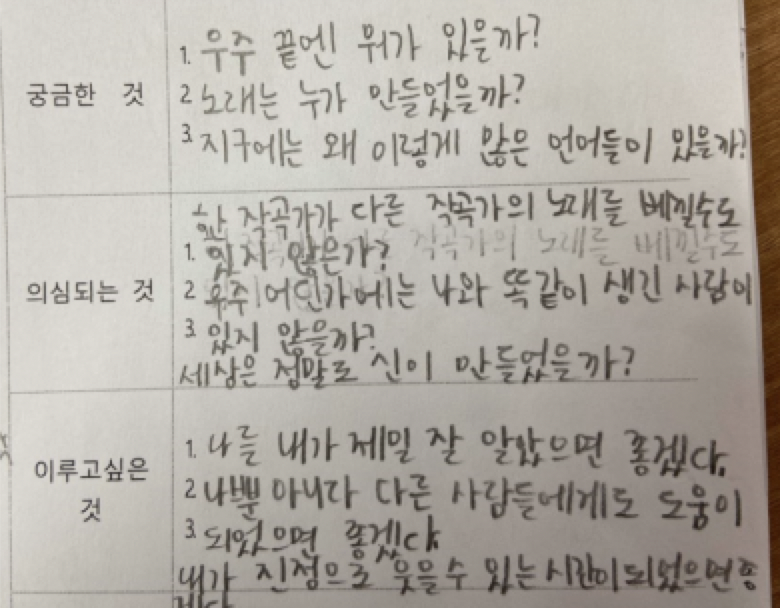 궁금한 것
1. 우주 끝엔 뭐가 있을까?
2 노래는 누가 만들었을까?
3. 지구에는 왜 이렇게 많은 언어들이 있을까?
의심되는 것
한 작곡가가 다른 작곡가의 노래를 베낄수도
1. 있지 않은가? 작곡가의 노래를 베낄수도
2 우주 어딘가에는 나와 똑같이 생긴 사람이
3. 있지 않을까?
세상은 정말로 신이 만들었을까?
이루고싶은 것
1. 나를 내가 제일 잘 알았으면 좋겠다.
2 나뿐 아니라 다른 사람들에게도 도움이
3. 되었으면 좋겠다
내가 진정으로 웃을수 있는 시간이되었으면